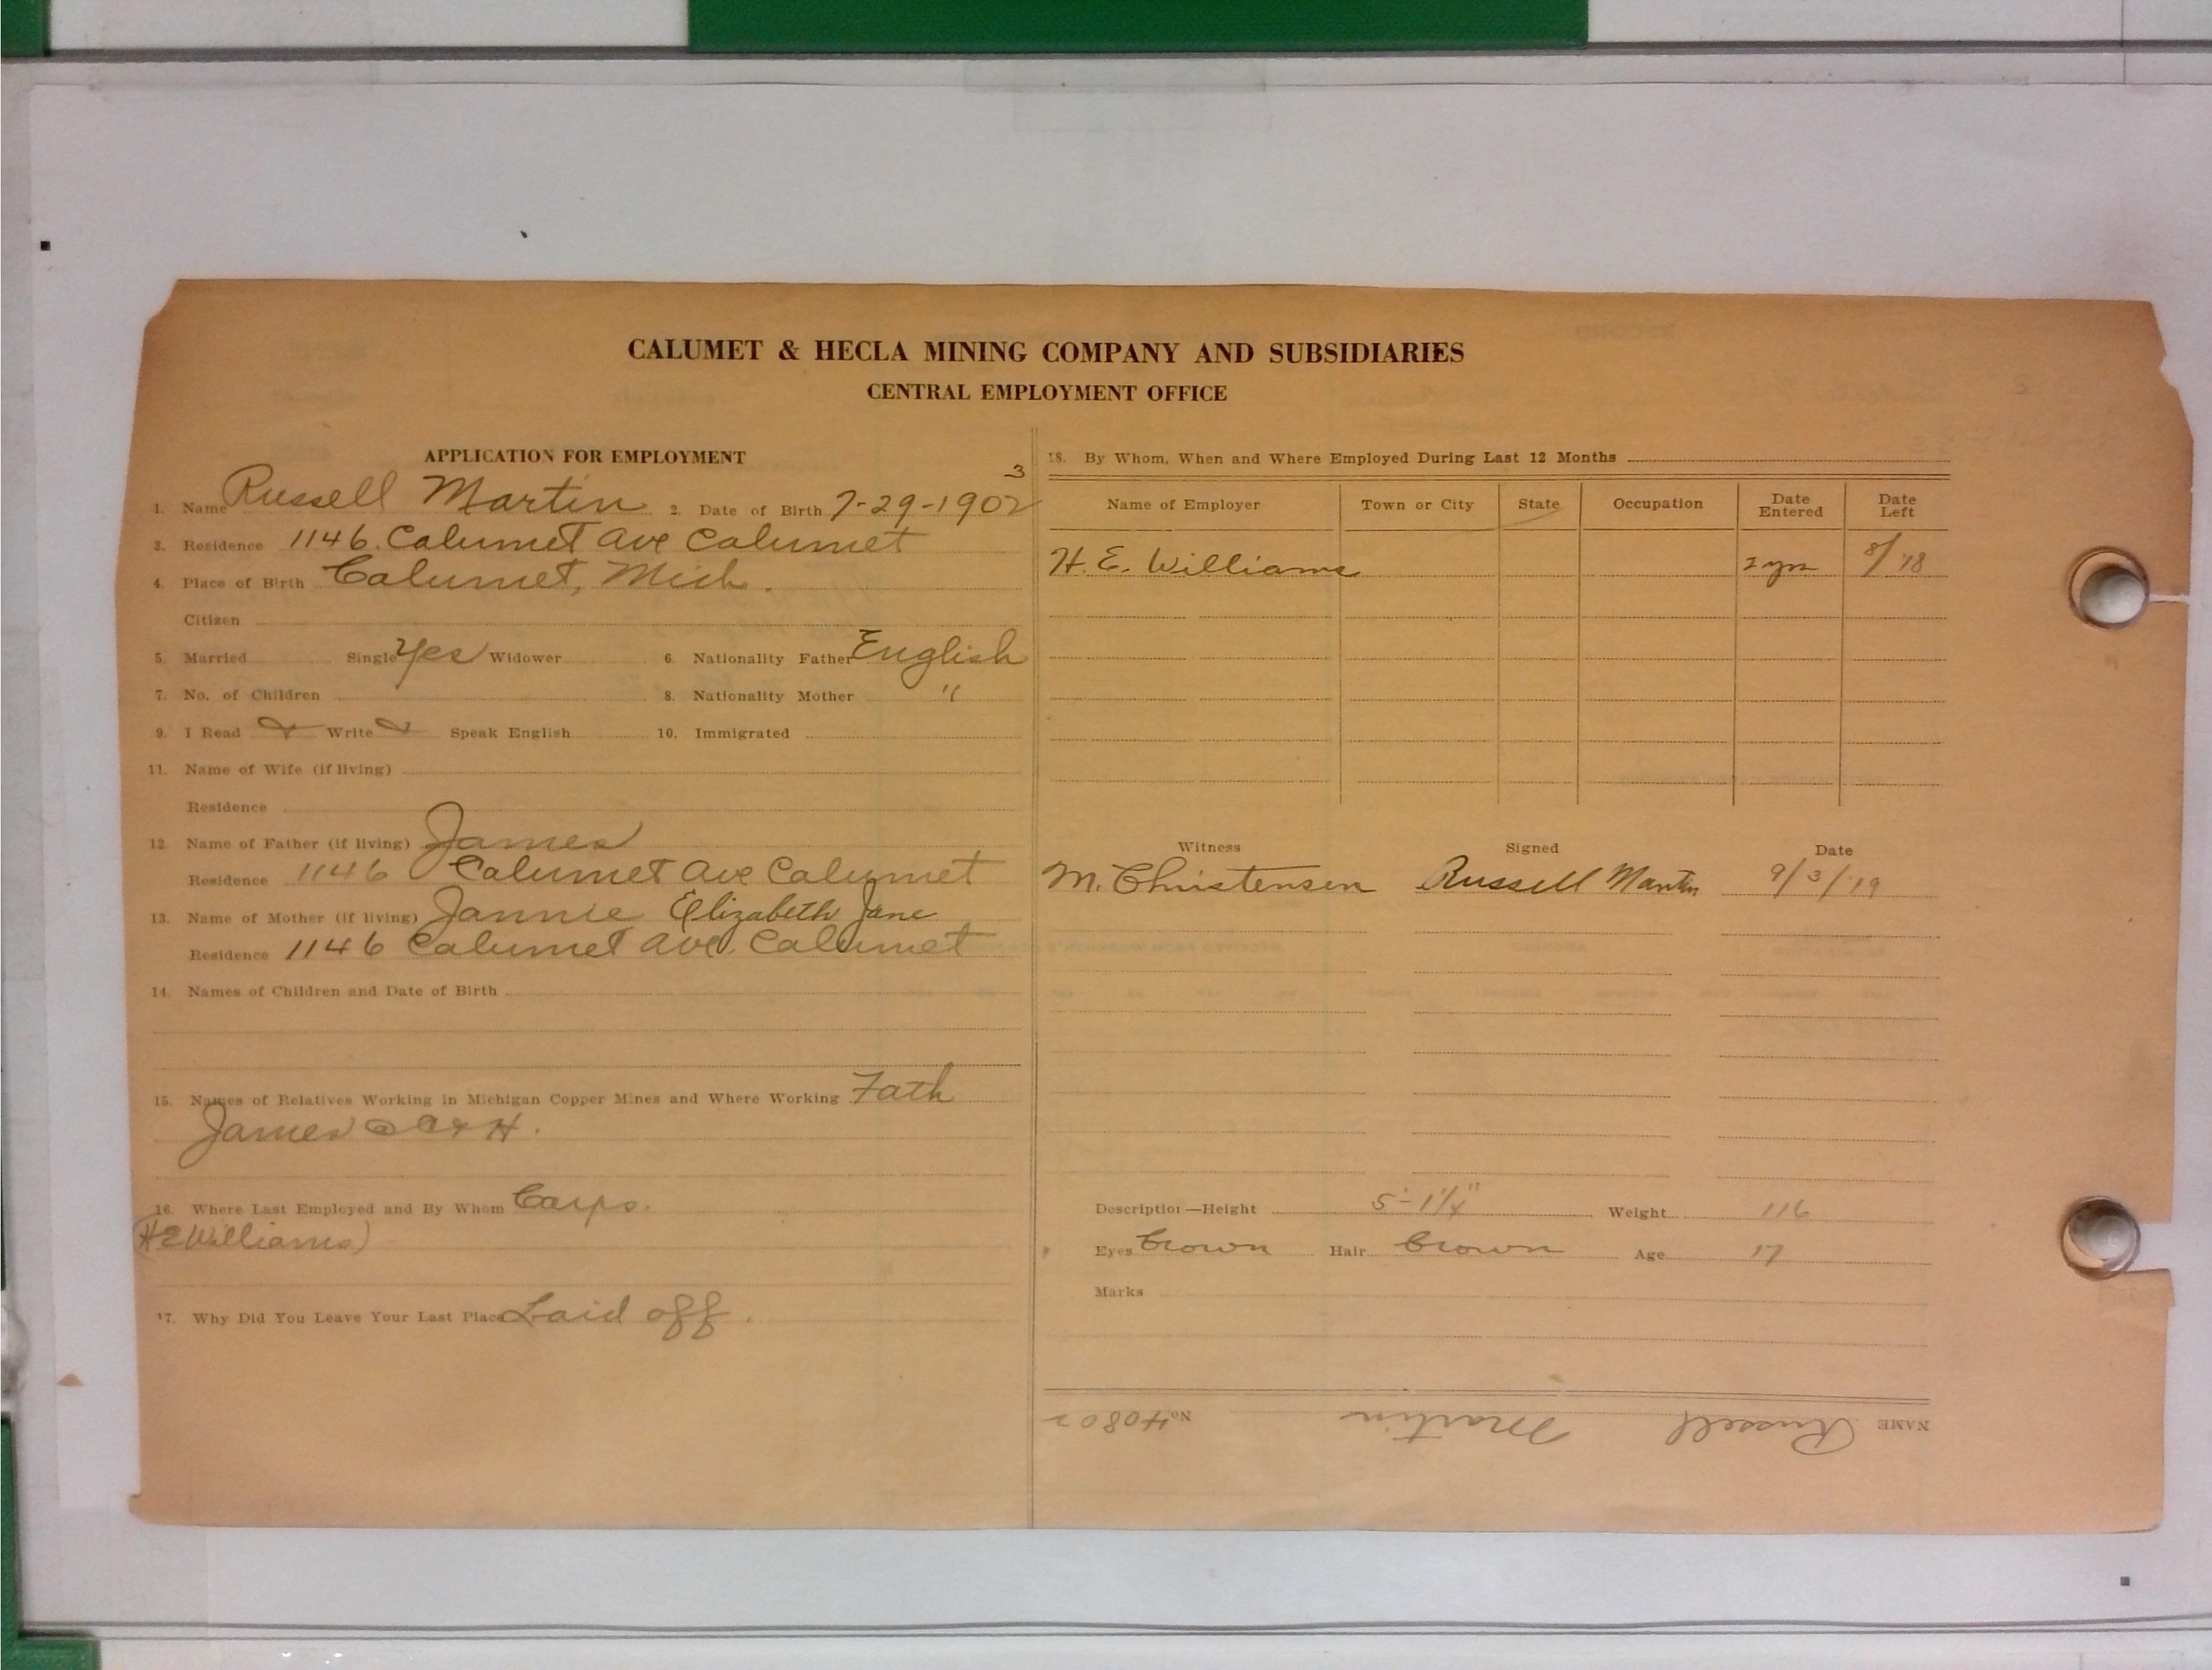 CALUMET & HECLA MINING COMPANY AND SUBSIDIARIES
CENTRAL EMPLOYMENT OFFICE
APPLICATION FOR EMPLOYMENT
3
1. Name Russell Martin 2. Date of Birth 7-29-1902
3. Residence 1146 Calumet Ave Calumet
4. Place of Birth Calumet, Mich.
Citizen
5. Married Single Yes Widower 6. Nationality Father English
7. No. of Children 8. Nationality Mother "
9. I Read Write Speak English 10. Immigrated
11. Name of Wife (if living)
Residence
12. Name of Father (if living) James
Residence 1146 Calumet Ave Calumet
13. Name of Mother (if living) Jannie Elizabeth Jane
Residence 1146 Calumet Ave. Calumet
14. Names of Children and Date of Birth
15. Names of Relatives Working in Michigan Copper Mines and Where Working Fath
James @ C & H.
16. Where Last Employed and By Whom
(H E Williams)
17. Why Did You Leave Your Last Place Laid off.
18. By Whom, When and Where Employed During Last 12 Months
Name of Employer Town or City State Occupation Date Entered Date Left
H. E. Williams 2 yrs 8/18
Witness Signed Date
M. Christensen Russell Martin 9/3/19
Description—Height 5'-1 1/4" Weight 116
Eyes Brown Hair Brown Age 17
Marks
NAME Russell Martin No. 40802